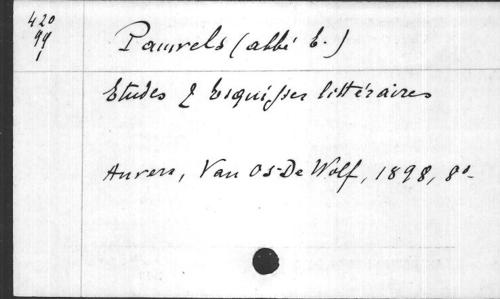 420
99
1
Pauwels (abbé E.)
Etudes & Esquisses littéraires
Anvers, Van Os-De Wolf, 1898, 8º